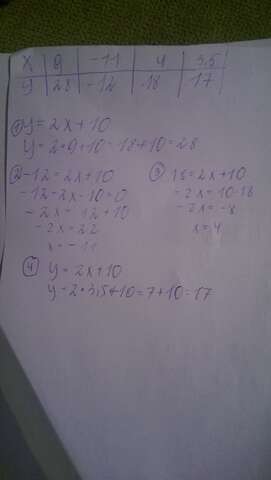 x | 9 | -11 | 4 | 3,5
y | 28 | -12 | 18 | 17
① y = 2x+10
y = 2•9+10=18+10=28
② -12=2x+10
-12-2x-10=0
-2x= 12+10
-2x=22
x = -11
③ 18=2x+10
-2x=10-18
-2x=-8
x=4
④ y = 2x+10
y = 2•3,5+10=7+10=17